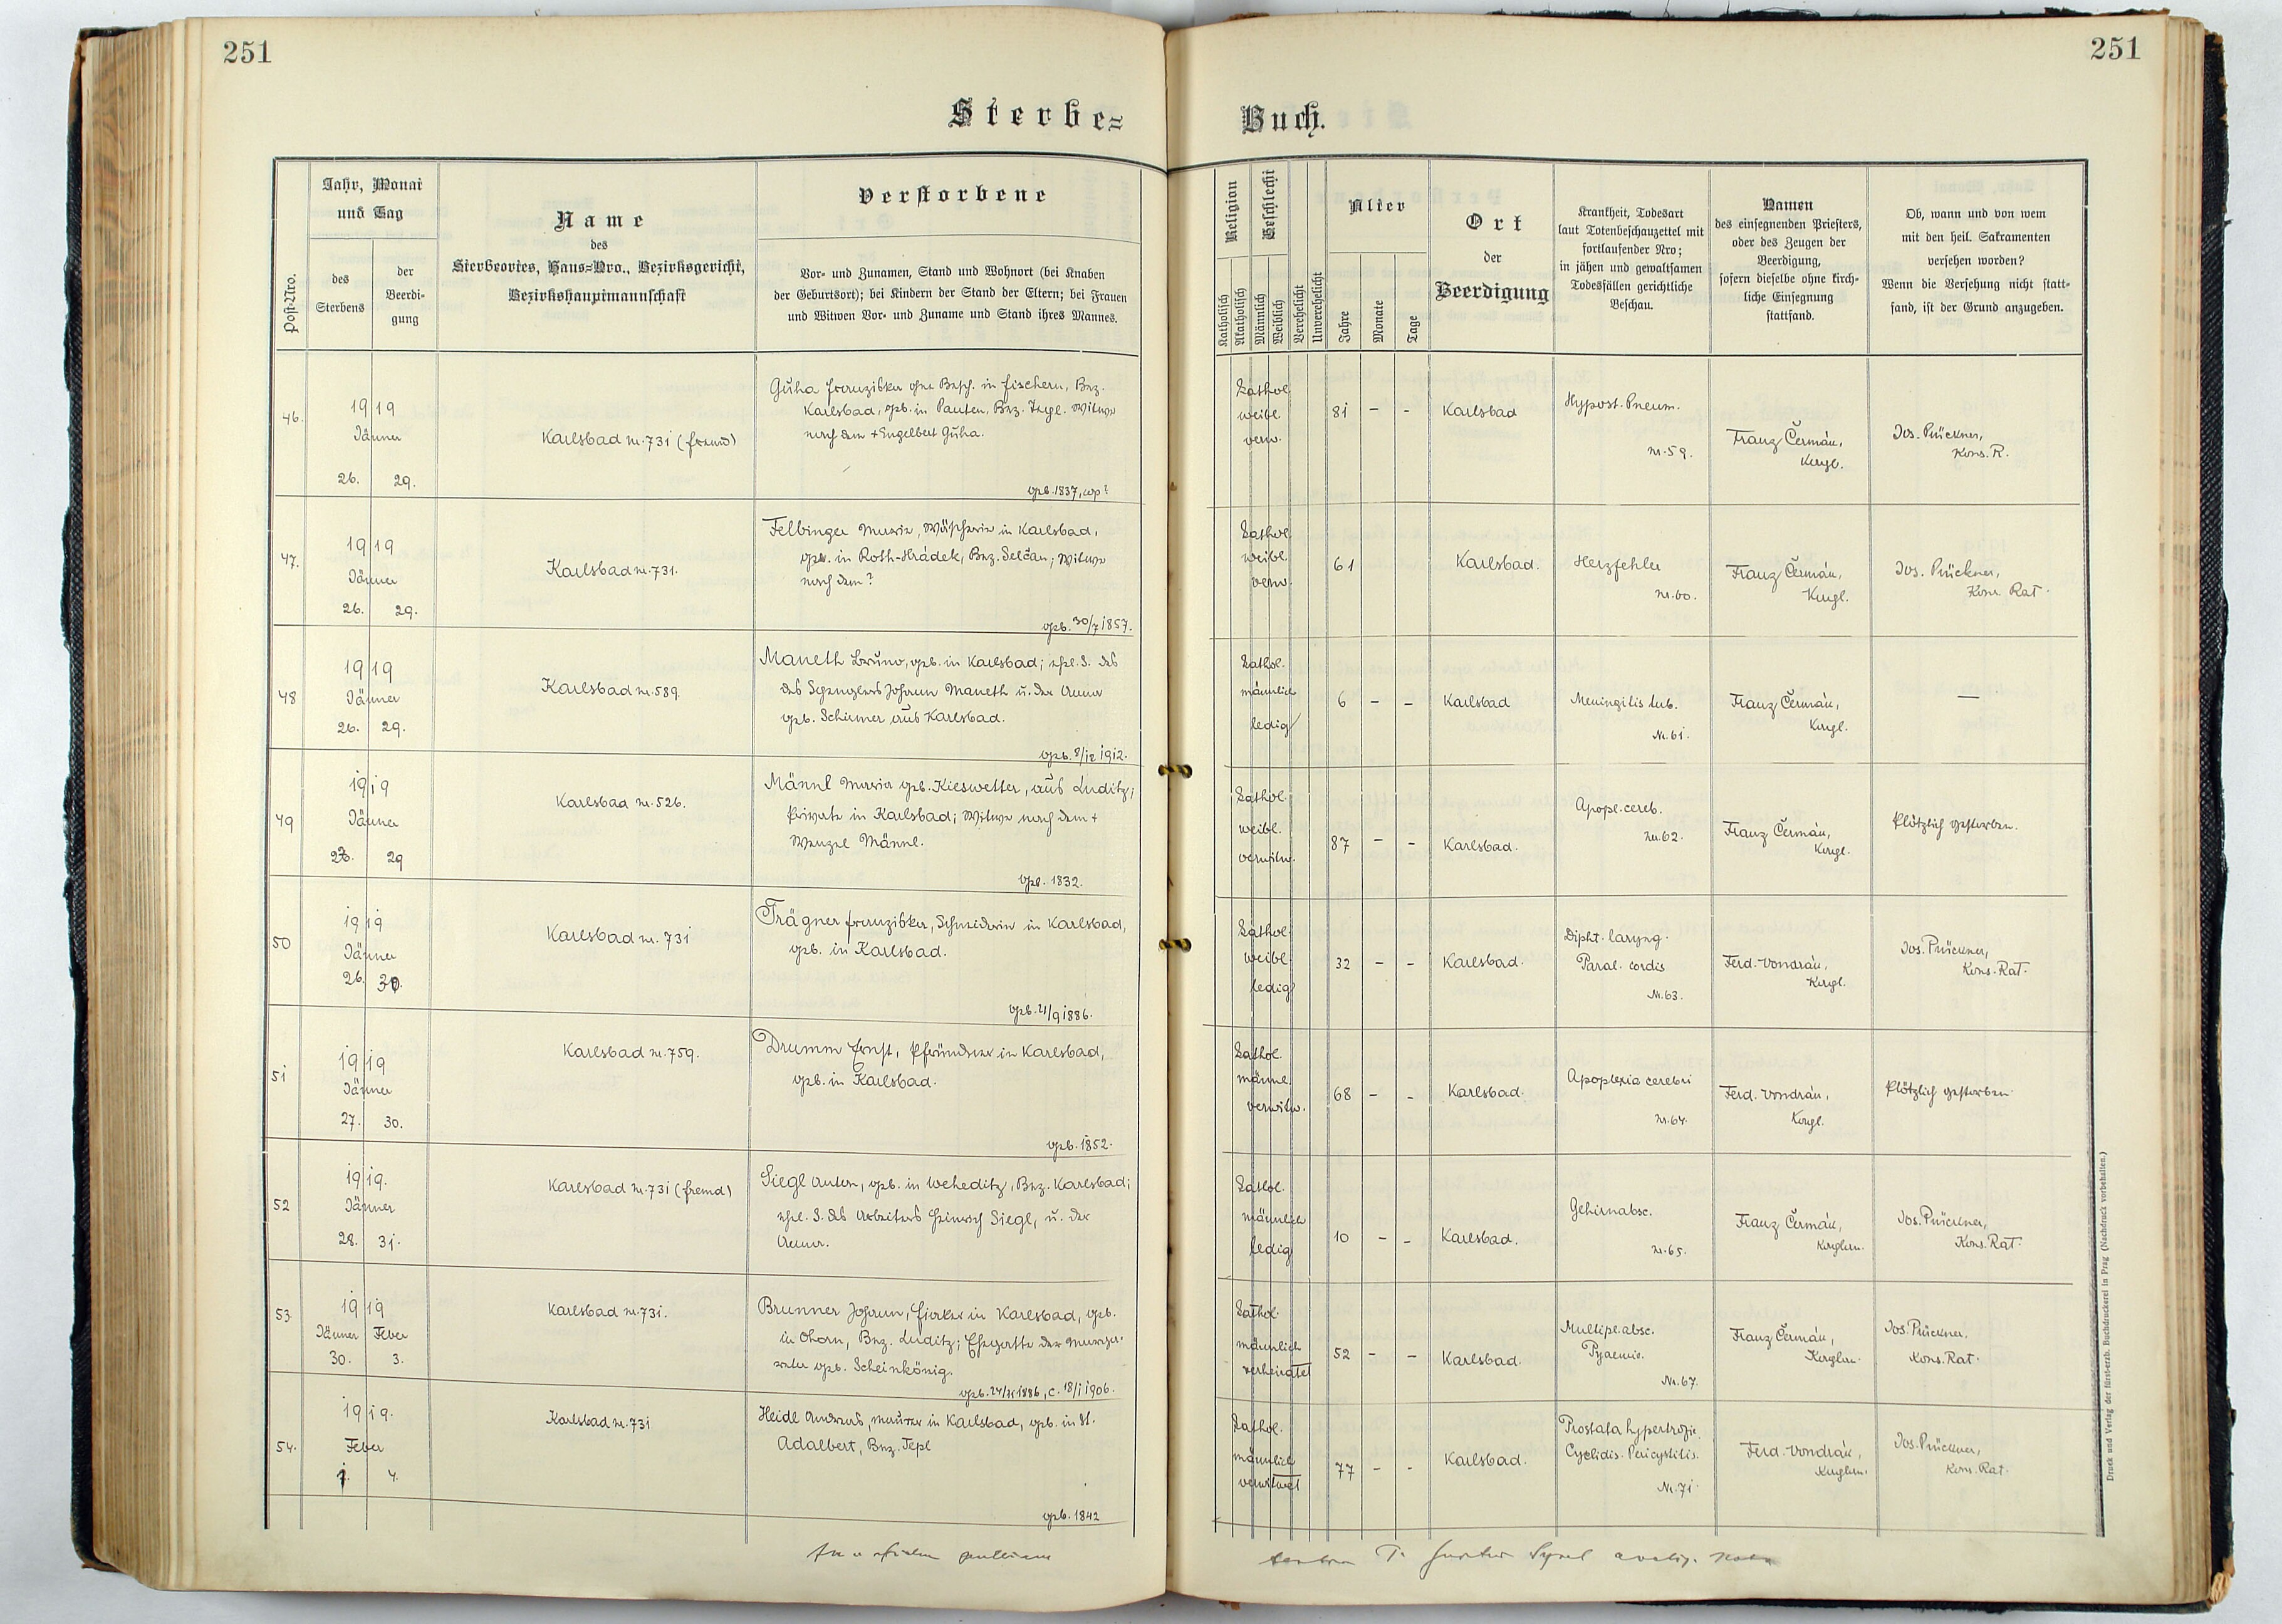 251
251
Sterbe-
Buch.
Post-Nro.
Jahr, Monat
und Tag
des
Sterbens
der
Beerdi-
gung
Name
des
Sterbeortes, Haus-Nro., Bezirksgericht,
Bezirkshauptmannschaft
Verstorbene
Vor- und Zunamen, Stand und Wohnort (bei Knaben
der Geburtsort); bei Kindern der Stand der Eltern; bei Frauen
und Witwen Vor- und Zuname und Stand ihres Mannes.
Religion
Katholisch
Akatholisch
Geschlecht
Männlich
Weiblich
Verehelicht
Unverehelicht
Alter
Jahre
Monate
Tage
Ort
der
Beerdigung
Krankheit, Todesart
laut Totenbeschauzettel mit
fortlaufender Nro;
in jähen und gewaltsamen
Todesfällen gerichtliche
Beschau.
Namen
des einsegnenden Priesters,
oder des Zeugen der
Beerdigung,
sofern dieselbe ohne kirch-
liche Einsegnung
stattfand.
Ob, wann und von wem
mit den heil. Sakramenten
versehen worden?
Wenn die Versehung nicht statt-
fand, ist der Grund anzugeben.
46.
1919
Jänner
26. 29.
Karlsbad nr. 731 (fremd)
Guha Franziska ohne Besch. in Fischern, Bez.
Karlsbad, geb. in Pauten, Bez. Witwe
nach dem + Engelbert Guha.
geb. 1837, wo?
kathol.
weibl.
verw.
81 - -
Karlsbad
Hypost. Pneum.
nr. 59.
Franz Čermák,
Kergl.
Jos. Prückner,
Kons. R.
47.
1919
Jänner
26. 29.
Karlsbad nr. 731.
Felbinger Maria, Wäscherin in Karlsbad,
geb. in Roth-Hrádek, Bez. Selčan; Witwe
nach dem?
geb. 30/7 1857.
kathol.
weibl.
verw.
61
Karlsbad.
Herzfehler
nr. 60.
Franz Čermák,
Kergl.
Jos. Prückner,
Kons. Rat.
48
1919
Jänner
26. 29.
Karlsbad nr. 589.
Maneth Bruno, geb. in Karlsbad; ehel. S. des
des Spenglers Johann Maneth u. der Anna
geb. Schirmer aus Karlsbad.
geb. 8/12 1912.
kathol.
männlich
ledig
6 - -
Karlsbad
Meningitis tub.
Nr. 61.
Franz Čermák,
Kergl.
—
49
1919
Jänner
26. 29
Karlsbad nr. 526.
Männl Maria geb. Kieswetter, aus Luditz;
Private in Karlsbad; Witwe nach dem +
Wenzel Männl.
geb. 1832.
kathol.
weibl.
verwitw.
87 - -
Karlsbad.
Apopl. cereb.
nr. 62.
Franz Čermák,
Kergl.
Plötzlich gestorben.
50
1919
Jänner
26. 30.
Karlsbad nr. 731
Trägner Franziska, Schneiderin in Karlsbad,
geb. in Karlsbad.
geb. 21/9 1886.
kathol.
weibl.
ledig
32 - -
Karlsbad.
Dipht. laryng.
Paral. cordis
Nr. 63.
Ferd. Vondrák,
Kergl.
Jos. Prückner,
Kons. Rat.
51
1919
Jänner
27. 30.
Karlsbad nr. 759.
Drumm Ernst, Pfründner in Karlsbad,
geb. in Karlsbad.
geb. 1852.
kathol.
männl.
verwitw.
68 - -
Karlsbad.
Apoplexia cerebri
nr. 64.
Ferd. Vondrák,
Kergl.
Plötzlich gestorben.
52
1919.
Jänner
28. 31.
Karlsbad nr. 731 (fremd)
Siegl Anton, geb. in Weheditz, Bez. Karlsbad;
ehel. S. des Arbeiters Heinrich Siegl, u. der
Anna.
kathol.
männlich
ledig
10 - -
Karlsbad.
Gehirnabsc.
nr. 65.
Franz Čermák,
Jos. Prückner,
Kons. Rat.
53
1919
Jänner Feber
30. 3.
Karlsbad nr. 731.
Brunner Johann, Fiaker in Karlsbad, geb.
in Ohorn, Bez. Luditz; Ehegatte der Marga-
reta geb. Scheinkönig.
1886, c. 18/1 1906.
kathol.
männlich
verheiratet
52 - -
Karlsbad.
Multipl. absc.
Pyaemie.
Nr. 67.
Franz Čermák,
Jos. Prückner,
Kons. Rat.
54.
1919.
Feber
1. 4.
Karlsbad nr. 731
Heidl Andreas, Maurer in Karlsbad, geb. in St.
Adalbert, Bez. Tepl
geb. 1842
kathol.
männlich
verwitwet
77 - -
Karlsbad.
Prostata hypertrofie.
Cystidis. Pericystitis.
Nr. 71
Ferd. Vondrák,
Jos. Prückner,
Kons. Rat.
Druck und Verlag der fürst-erzb. Buchdruckerei in Prag (Nachdruck vorbehalten.)